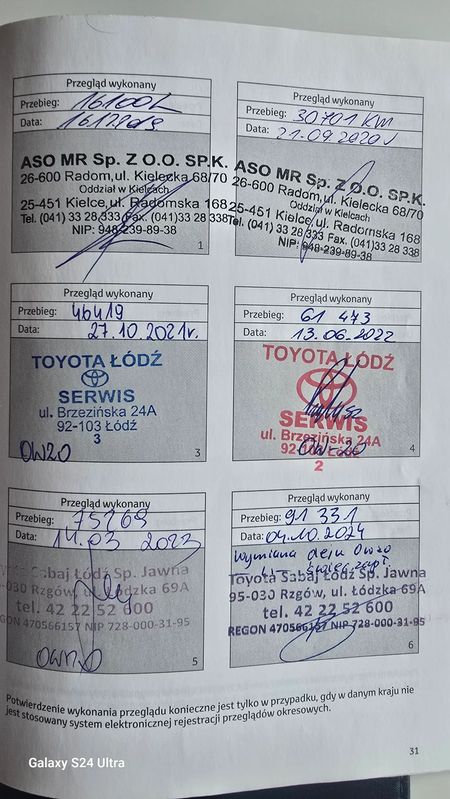 Przegląd wykonany
Przebieg: 16100
Data: 16122019
ASO MR Sp. Z O.O. SP.K.
26-600 Radom,ul. Kielecka 68/70
Oddział w Kielcach
25-451 Kielce,ul. Radomska 168
Tel. (041) 33 28 333 Fax. (041)33 28 338
NIP: 948-239-89-38
1
Przegląd wykonany
Przebieg: 30701 KM
Data: 21.09.2020
ASO MR Sp. Z O.O. SP.K.
26-600 Radom,ul. Kielecka 68/70
Oddział w Kielcach
25-451 Kielce,ul. Radomska 168
Tel. (041) 33 28 333 Fax. (041)33 28 338
NIP: 948-239-89-38
2
Przegląd wykonany
Przebieg: 46419
Data: 27.10.2021r.
TOYOTA ŁÓDŹ
SERWIS
ul. Brzezińska 24A
92-103 Łódź
3
OW20
3
Przegląd wykonany
Przebieg: 61 473
Data: 13.06.2022
TOYOTA ŁÓDŹ
SERWIS
ul. Brzezińska 24A
92-103
OW-20
2
4
Przegląd wykonany
Przebieg: 75269
Data: 14.03 2023
Łódź Sp. Jawna
Rzgów, ul. Łódzka 69A
tel. 42 22 52 600
REGON 470566157 NIP 728-000-31-95
OW20
5
Przegląd wykonany
Przebieg: 91 331
Data: 04.10.2024
Wymiana oleju OW20
Toyota Sabaj Łódź Sp. Jawna
95-030 Rzgów, ul. Łódzka 69A
tel. 42 22 52 600
REGON 470566157 NIP 728-000-31-95
6
Potwierdzenie wykonania przeglądu konieczne jest tylko w przypadku, gdy w danym kraju nie
jest stosowany system elektronicznej rejestracji przeglądów okresowych.
31
Galaxy S24 Ultra